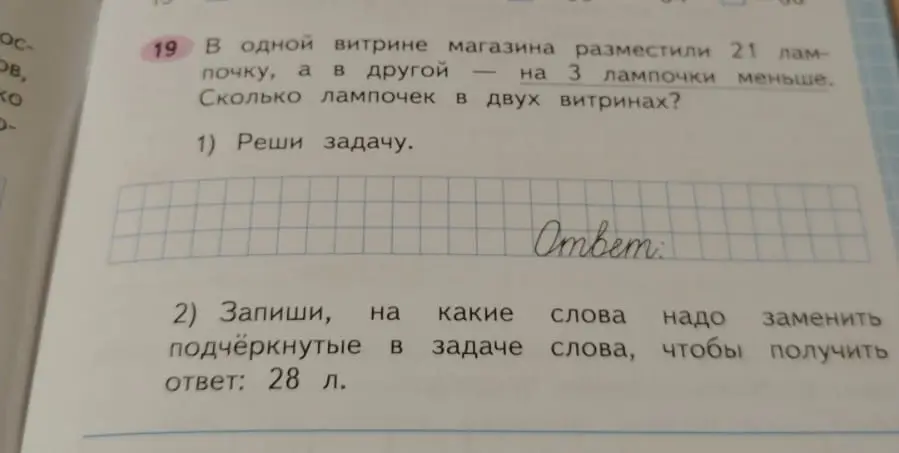 ос-
ов,
ко
о-
19 В одной витрине магазина разместили 21 лам-
почку, а в другой — на 3 лампочки меньше.
Сколько лампочек в двух витринах?
1) Реши задачу.
Ответ:
2) Запиши, на какие слова надо заменить
подчёркнутые в задаче слова, чтобы получить
ответ: 28 л.